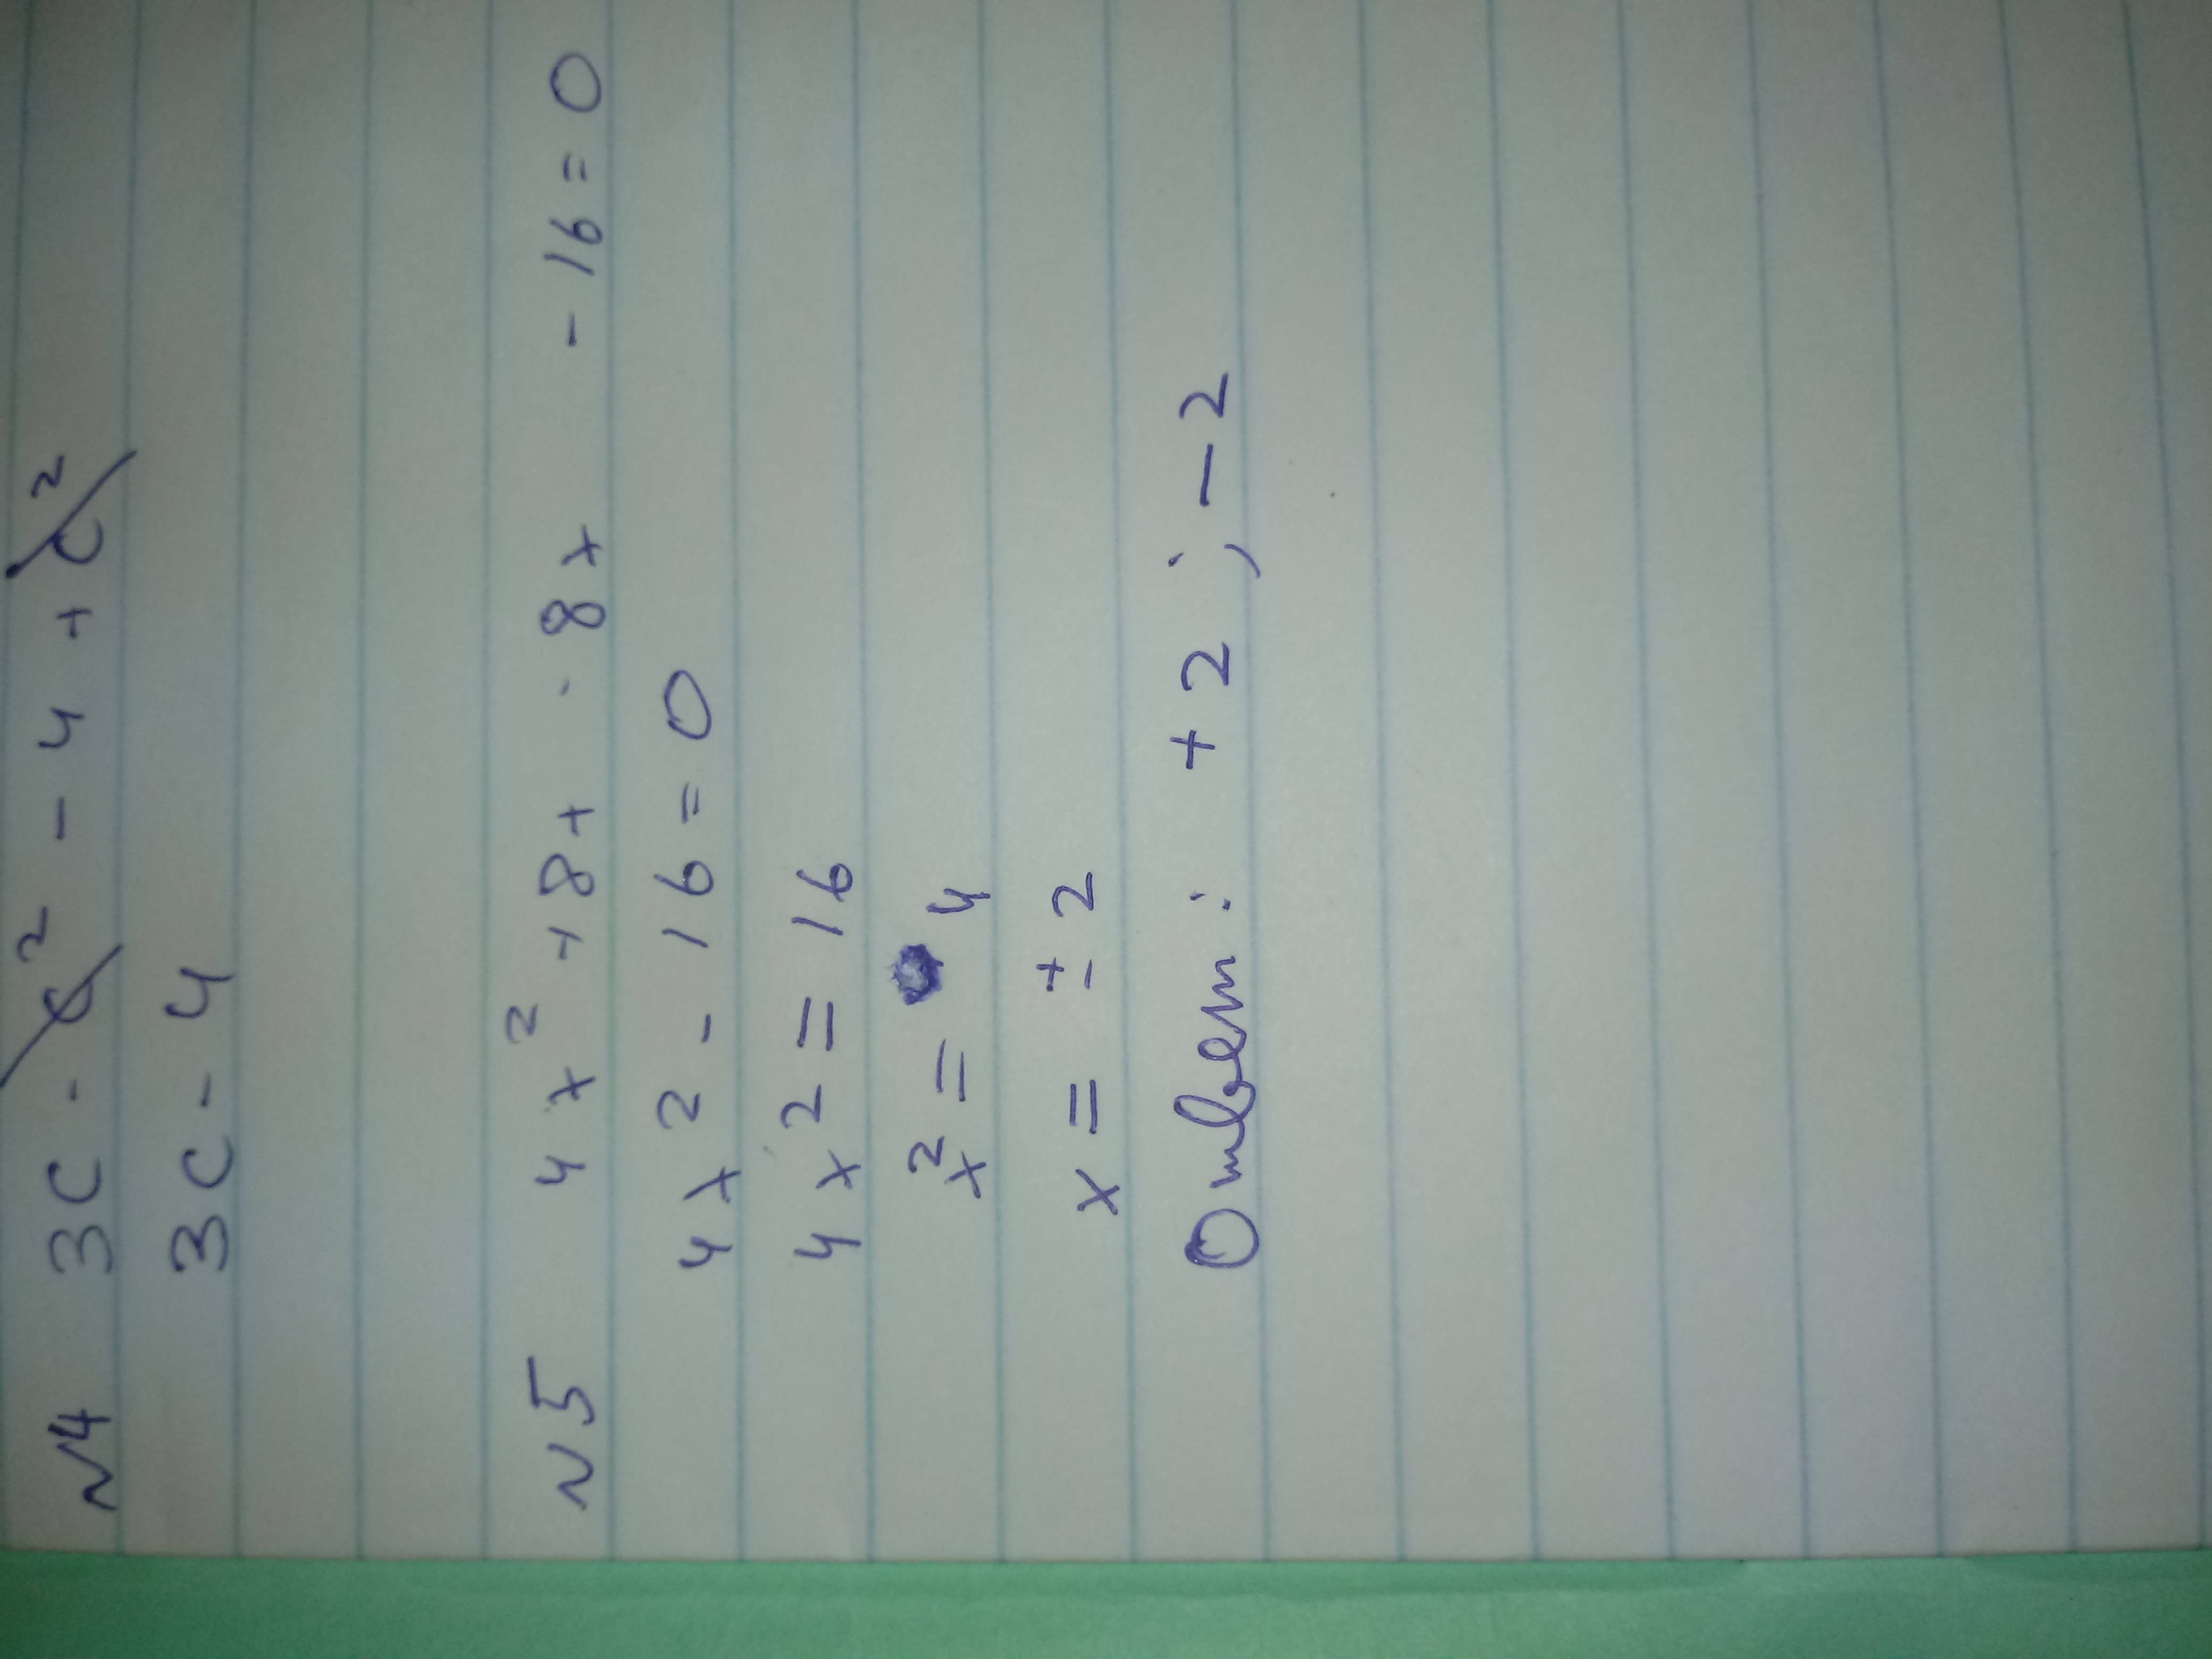 N4 3c - c² - 4 + c²
3c - 4
N5 4x² + 8x - 8x - 16 = 0
4x² - 16 = 0
4x² = 16
x² = 4
x = ± 2
Ответ: +2 ; -2